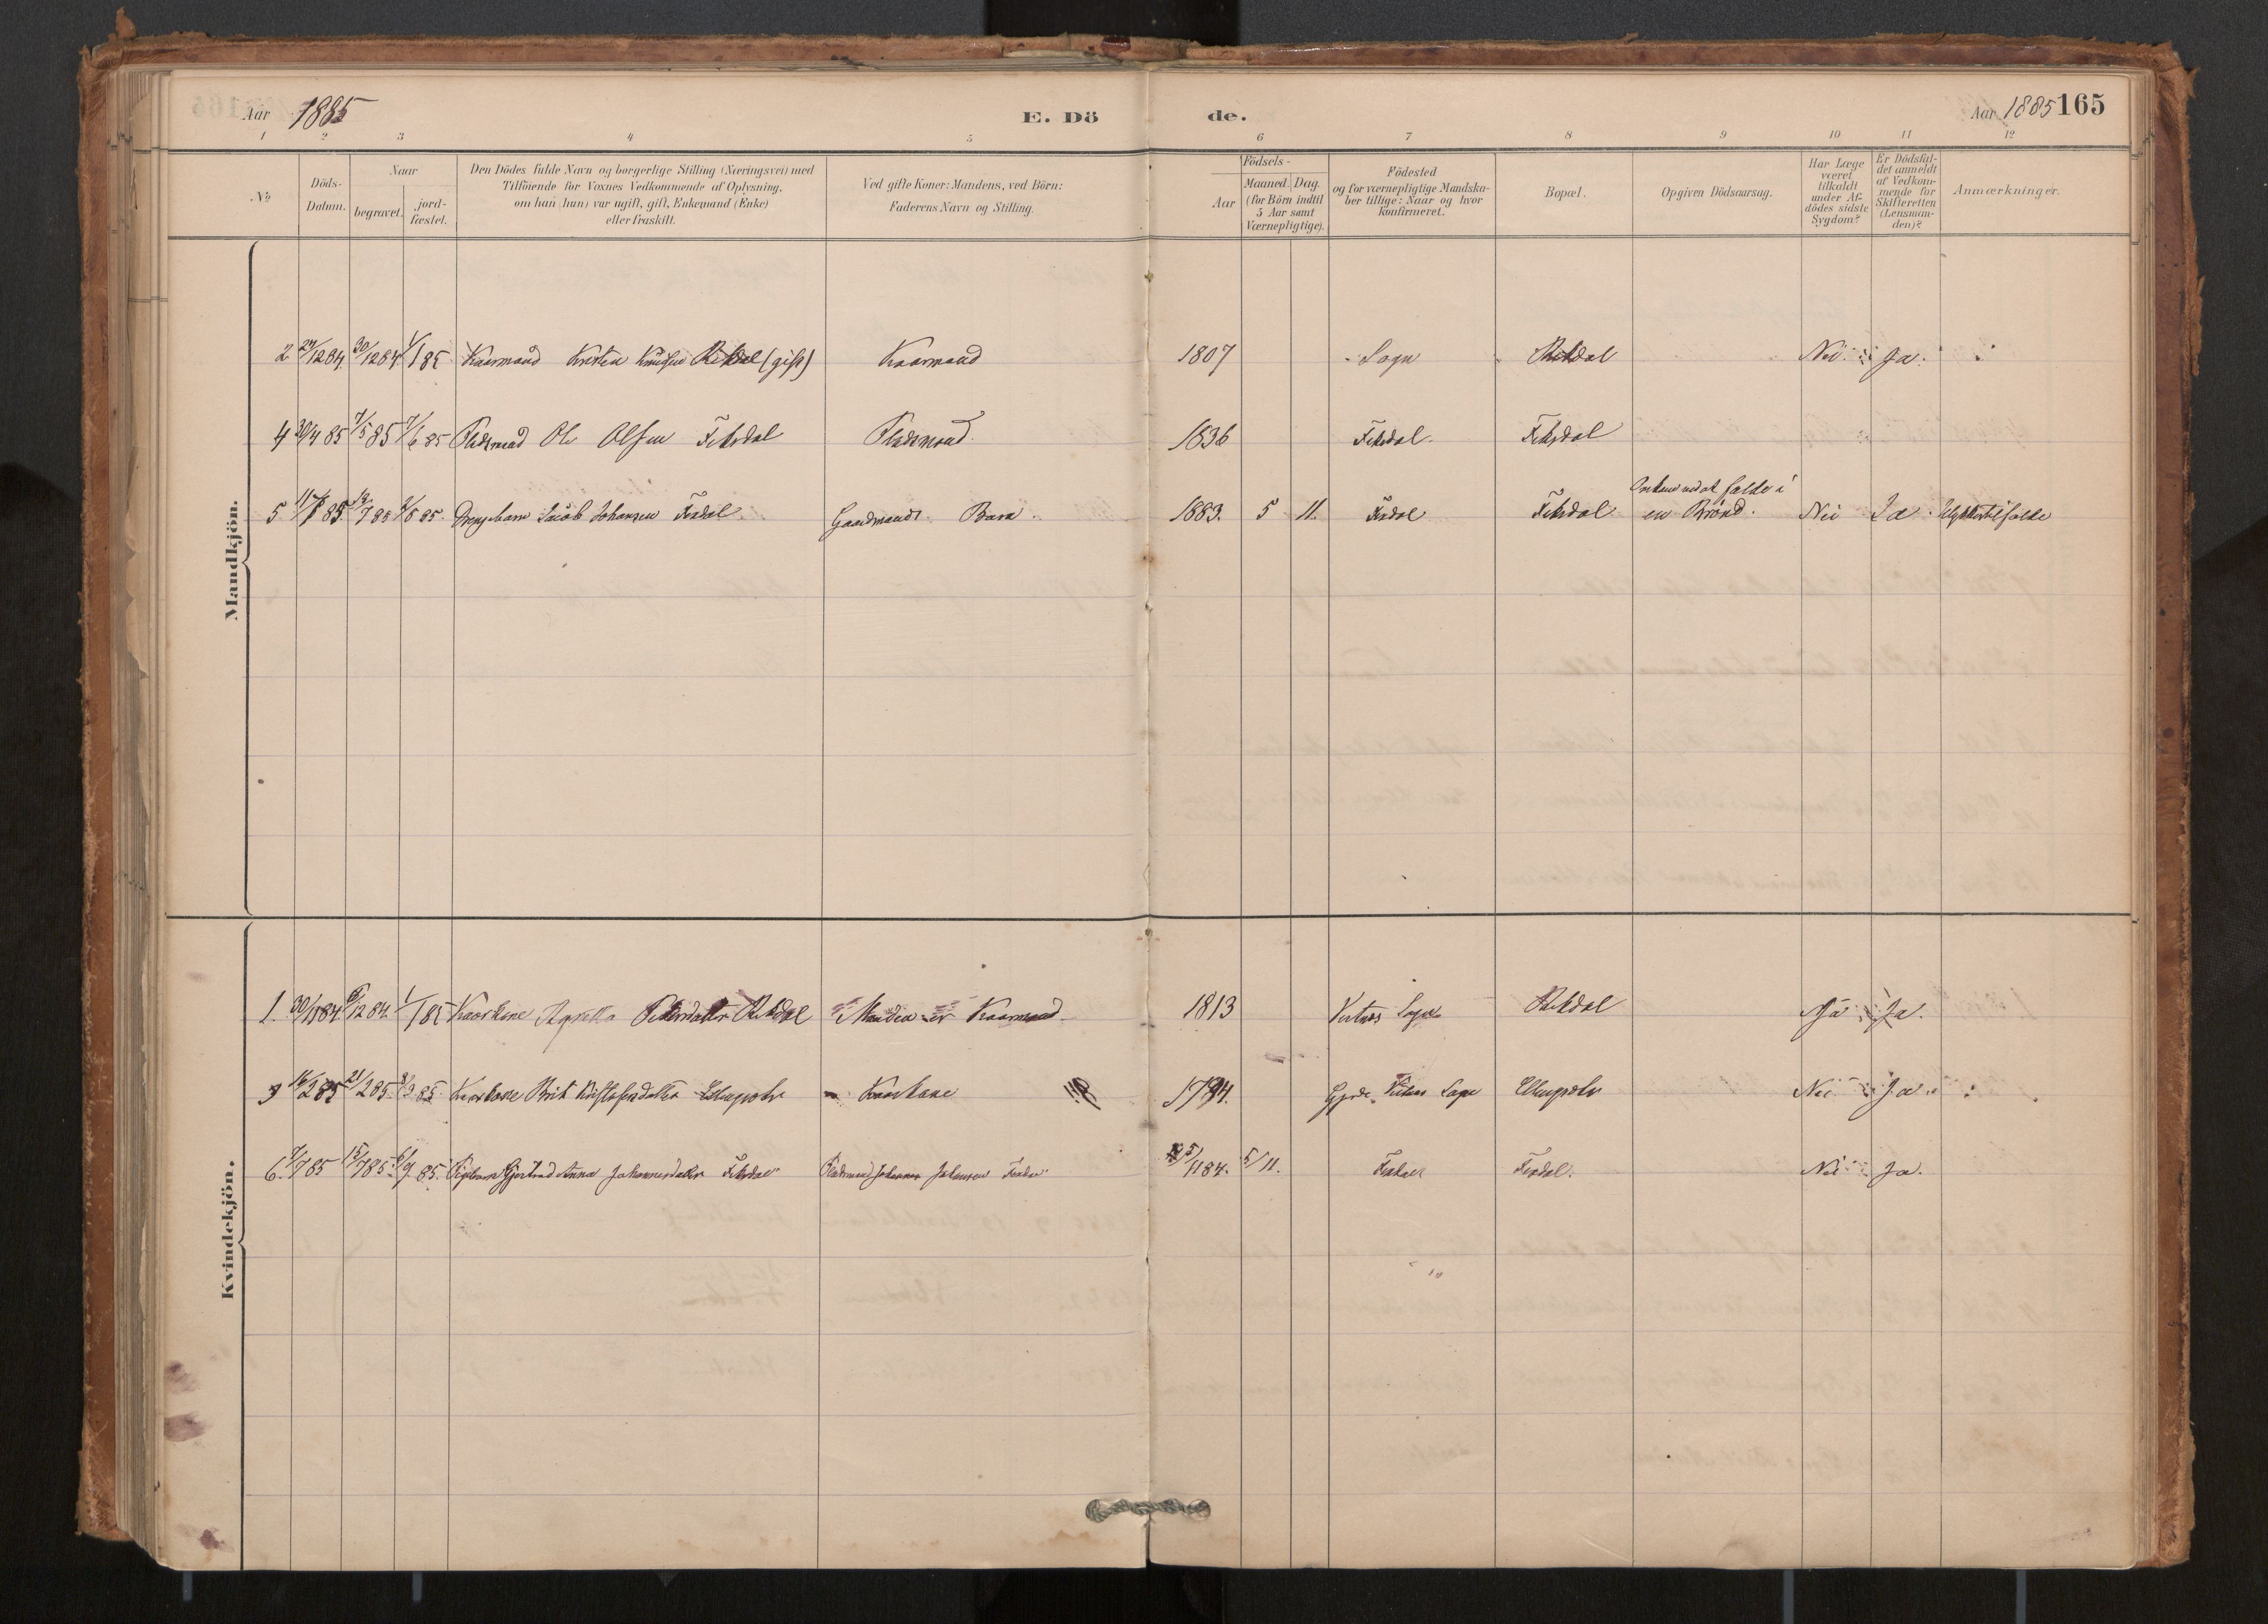 Aar 1885
E. Dö
de.
Aar 1885 165
1 2 3 4 5 6 7 8 9 10 11 12
No
Döds-
Datum.
Naar
begravet.
jord-
fæstet.
Den Dödes fulde Navn og borgerlige Stilling (Næringsvei) med
Tilföiende for Voxnes Vedkommende af Oplysning,
om han (hun) var ugift, gift, Enkemand (Enke)
eller fraskilt.
Ved gifte Koner: Mandens, ved Börn:
Faderens Navn og Stilling.
Födsels-
Aar
Maaned. Dag.
(for Börn indtil
5 Aar samt
Værnepligtige).
Födested
og for værnepligtige Mandska-
ber tillige: Naar og hvor
Konfirmeret.
Bopæl.
Opgiven Dödsaarsag.
Har Læge
været
tilkaldt
under Af-
dödes sidste
Sygdom?
Er Dödsfal-
det anmeldt
af Vedkom-
mende for
Skifteretten
(Lensman-
den)?
Anmærkninger.
Mandkjön.
2 /12 84. 30/12 84. 1/1 85 Kaarmand Knudsen Rekdal (gift) Kaarmand 1807 Sogn Rekdal Nei Ja.
4 30/4 85 7/5 85 7/6 85 Pladsmand Ole Olsen Fiksdal Pladsmand 1836 Fiksdal Fiksdal
5 11/7 85 19/7 85 85. Drengebarn Jacob Johansen Fixdal Gaardmands Barn 1883. 5 11. Fixdal Fiksdal ved at falde i
en Brönd. Nei Ja Ulykkestilfælde
Kvindekjön.
1. 30/11 84 /12 84. 1/1 85 Kaarkone Pedersdatter Rekdal Manden er Kaarmand 1813 Sogn Rekdal Ja Ja.
3 16/2 85 21/2 85. 85. Kaarkone Brit Kaarkone 1794. Sogn Nei Ja
6. 7/7 85 15/7 85 6/9 85. Pigebarn Gjertrud Anna Johannesdatter Fiksdal Pladsmand Johannes Johansen Fixdal 5/11 84. 5/11. Fixdal Fixdal. Nei Ja.